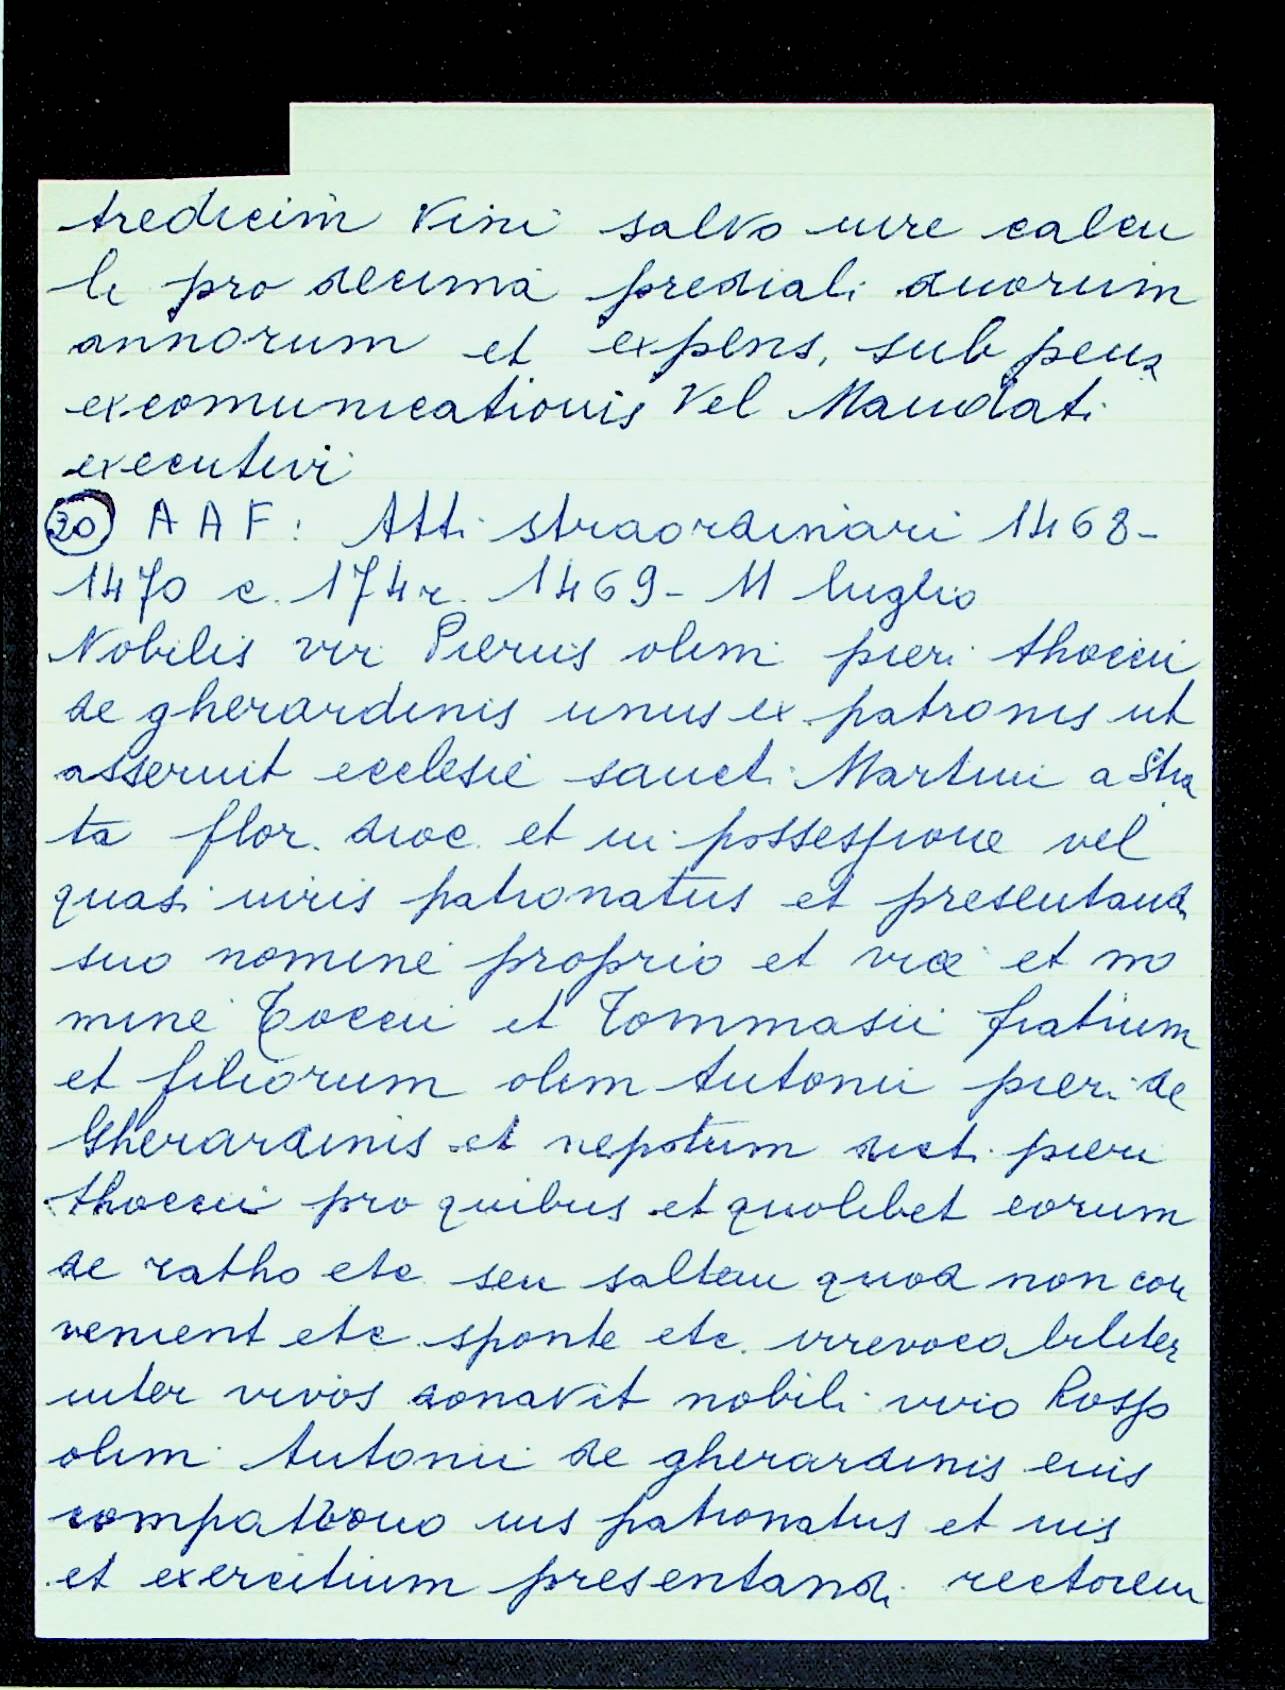 tredicim vini salvo iure calcu
li pro decima prediali duorum
annorum et expens, sub pena
excomunicationis vel Mandati
executivi
20 A A F: Atti straordinari 1468-
1470 c. 174r. 1469 - 11 luglio
Nobilis vir Pierus olim pieri thoccii
de gherardinis unus ex patronis ut
asseruit ecclesie sancti Martini a Stra
ta flor. dioc. et in possessione vel
quasi iuris patronatus et presentandi
suo nomine proprio et vice et no
mine Toccii et Tommasii fratrum
et filiorum olim Antonii pieri de
Gherardinis et nepotum dicti pieri
thoccii pro quibus et quolibet eorum
de ratho etc seu saltem quod non con
venient etc. sponte etc. irrevocabiliter
inter vivos donavit nobili viro Rosso
olim Antonii de gherardinis eius
compatrono ius patronatus et ius
et exercitium presentandi rectorem